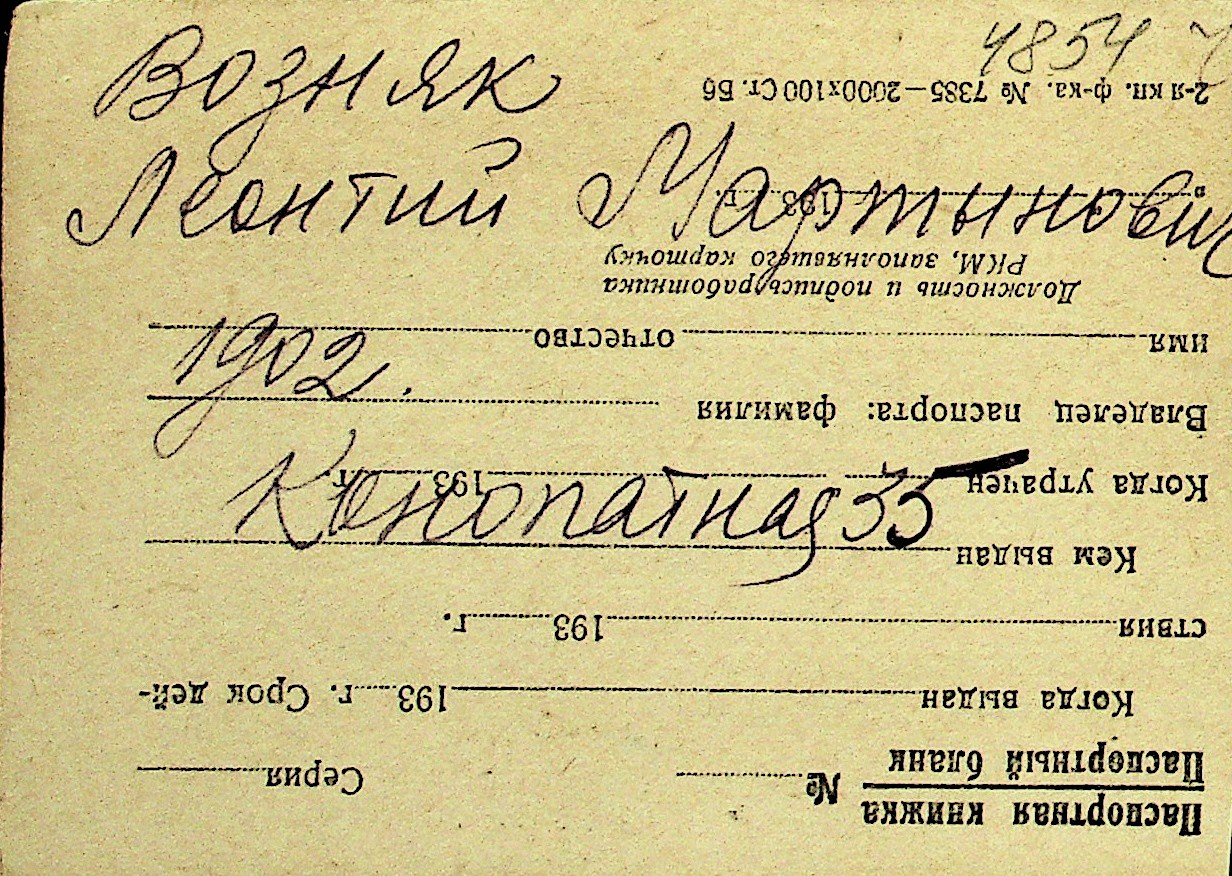 4854
Возняк
Леонтий Мартынович
1902.
Конопатная 35
Паспортная книжка
Паспортный бланк
№ Серия
Когда выдан 193 г. Срок дей-
ствия 193 г.
Кем выдан
Когда утрачен 193 г.
Владелец паспорта: фамилия
имя отчество
Должность и подпись работника
РКМ, заполнявшего карточку
" 193 г.
2-я кн. ф-ка. № 7385—2000х100 Ст. Бб